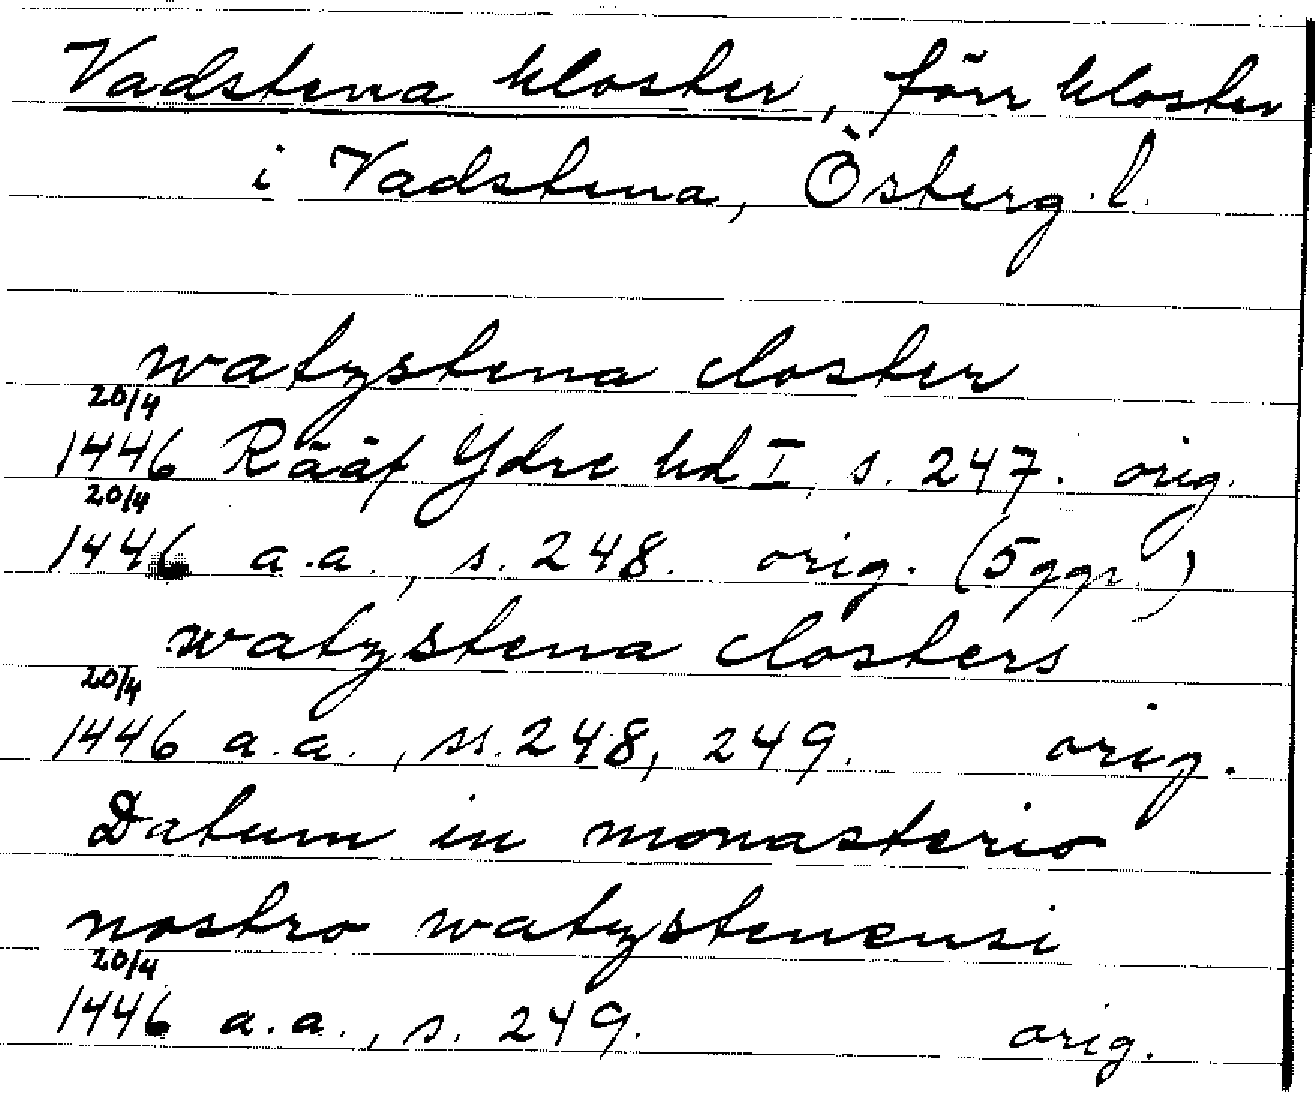 Vadstena kloster, förr kloster
i Vadstena, Österg. l.
watzstena closter
20/4
1446 Rääf Ydre hd I, s. 247. orig.
20/4
1446 a.a., s. 248. orig. (5 ggr.)
watzstena closters
20/4
1446 a.a., ss. 248, 249. orig.
Datum in monasterio
nostro watzstenensi
20/4
1446 a.a., s. 249. orig.